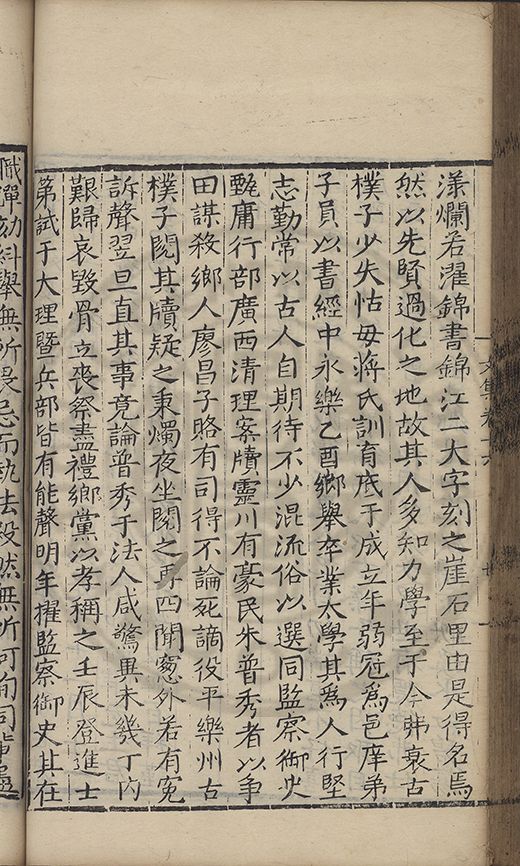 漾爛若濯錦書錦江二大字刻之崖石里由是得名焉
然以先賢過化之地故其人多知力學至于今弗衰古
樸子少失怙毋蔣氏訓育底于成立年弱冠為邑庠弟
子員以書經中永樂乙酉鄉舉卒業太學其為人行堅
志勤常以古人自期待不少混流俗以選同監察御史
甄庸行部廣西清理案牘靈川有豪民朱普秀者以争
田謀殺鄉人廖昌子賂有司得不論死謫役平樂州古
樸子閱其牘疑之秉燭夜坐閱之再四聞窓外若有冤
訴聲翌旦直其事竟論普秀于法人咸驚異未幾丁内
艱歸哀毀骨立喪祭盡禮鄉黨以孝稱之壬辰登進士
第試于大理暨兵部皆有能聲明年擢監察御史其在
職彈劾糾舉無所畏忌而執法毅然無所可徇同軰
文集卷十六